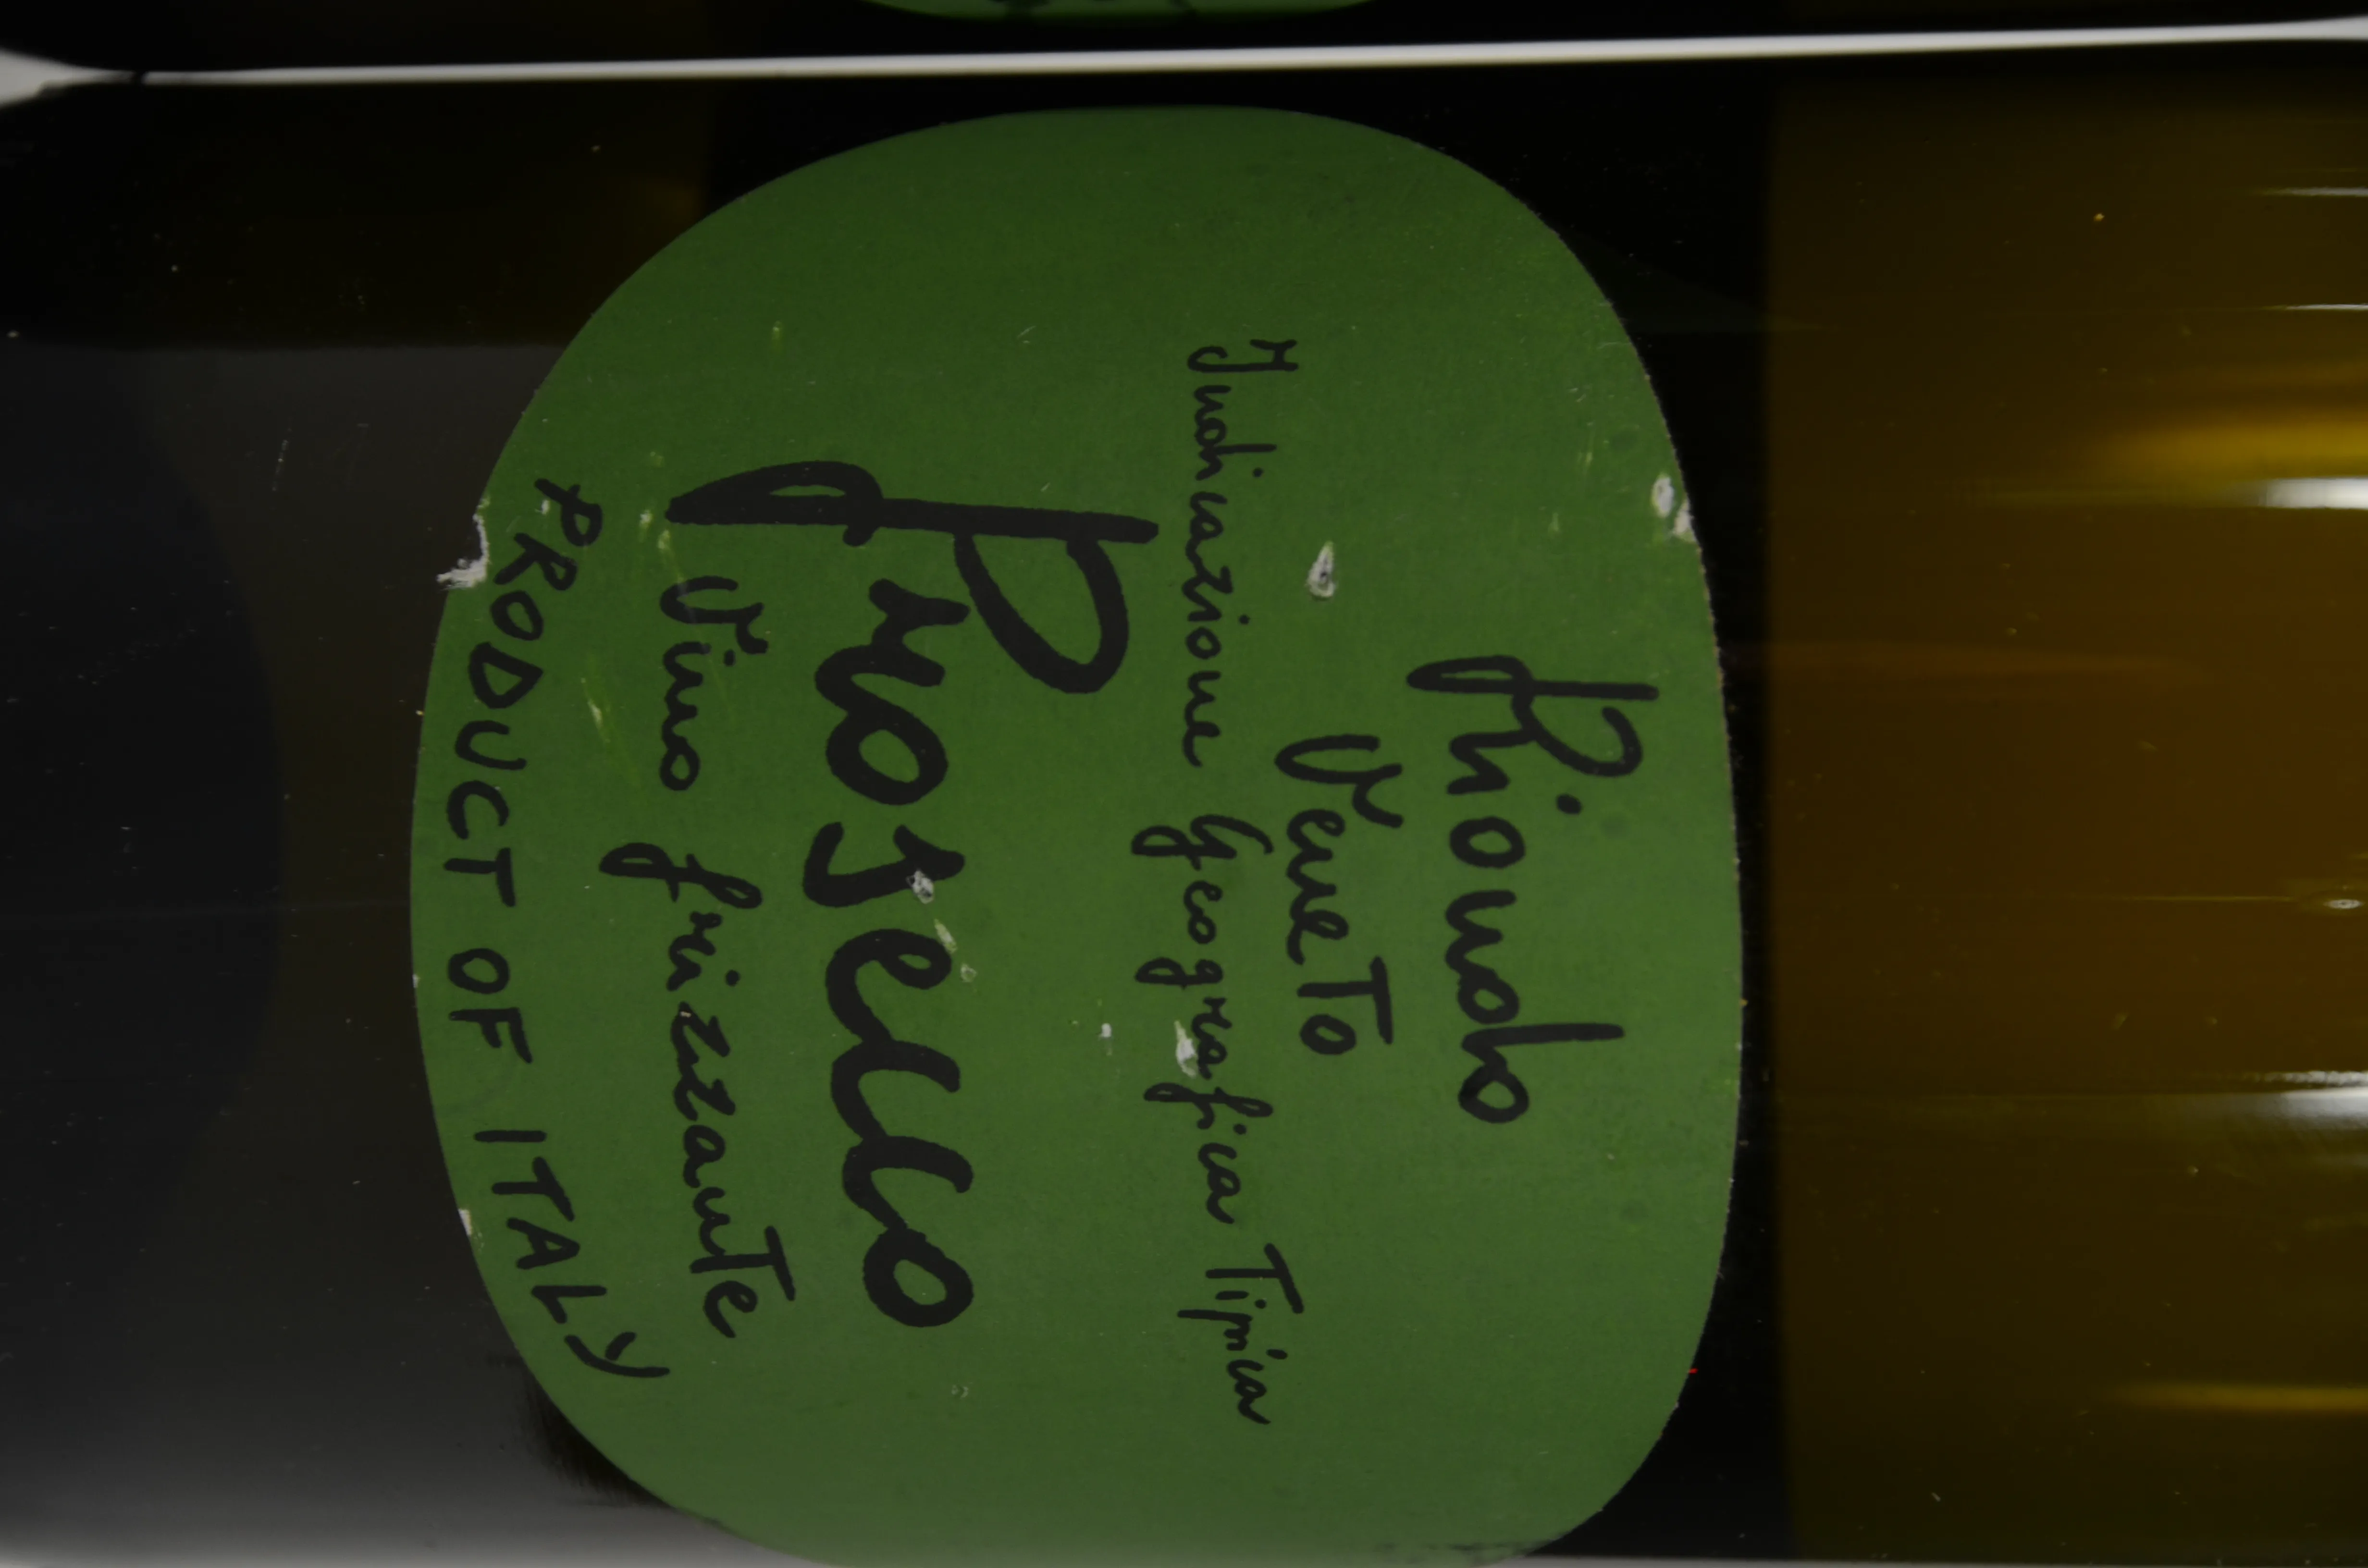 Riondo
Veneto
Indicazione Geografica Tipica
Prosecco
Vino frizzante
PRODUCT OF ITALY